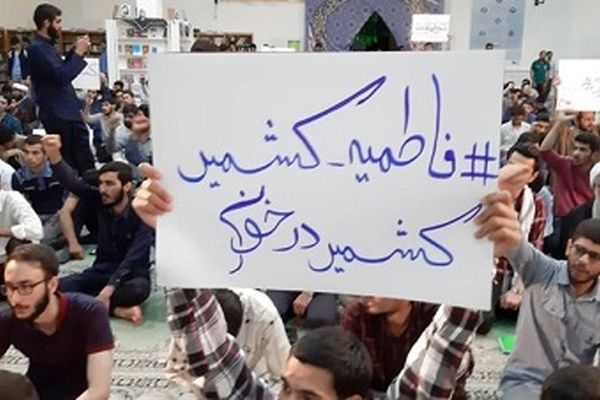 #فاطمیه_کشمیر
کشمیر در خون